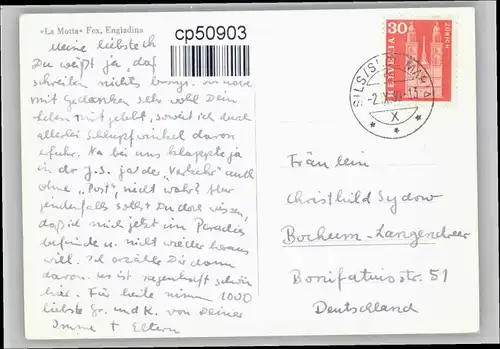 «La Motta» Fex, Engiadina
cp50903
Meine liebste
Du weißt ja, daß
schreiben nichts
mit Gedanken sehr wohl Dein
Leben mit gelebt, soweit ich durch
allerlei Schlupfwinkel davon
erfuhr. Na bei uns klappte ja
in der ja der „Verkehr“ auch
ohne „Post“, nicht wahr? Hier
jedenfalls sollst Du doch wissen,
daß ich mich jetzt im Paradies
befinde u. nicht wieder heraus
will. Ich erzähle Dir dann
davon. es ist sagenhaft schön
hier. Für heute nimm 1000
liebste Gr. und K. von Deiner
Imme + Eltern
HELVETIA 30
ZÜRICH
SILS
-2.IX.
X
Fräulein
Christhild Sydow
Bochum-Langendreer
Bonifatiusstr. 51
Deutschland